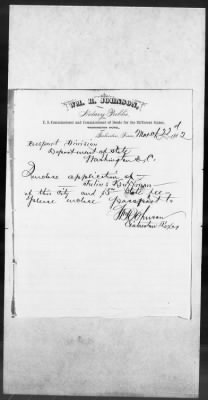 WM. H. JOHNSON,
Notary Public,
U. S. Commissioner and Commissioner of Deeds for the Different States,
Galveston, Texas, March 22d
Passport Division
Department of State
Washington D.C.
Inclose application of
Julius
of this City and fee
please inclose passport to
Wm H Johnson
Galveston Texas